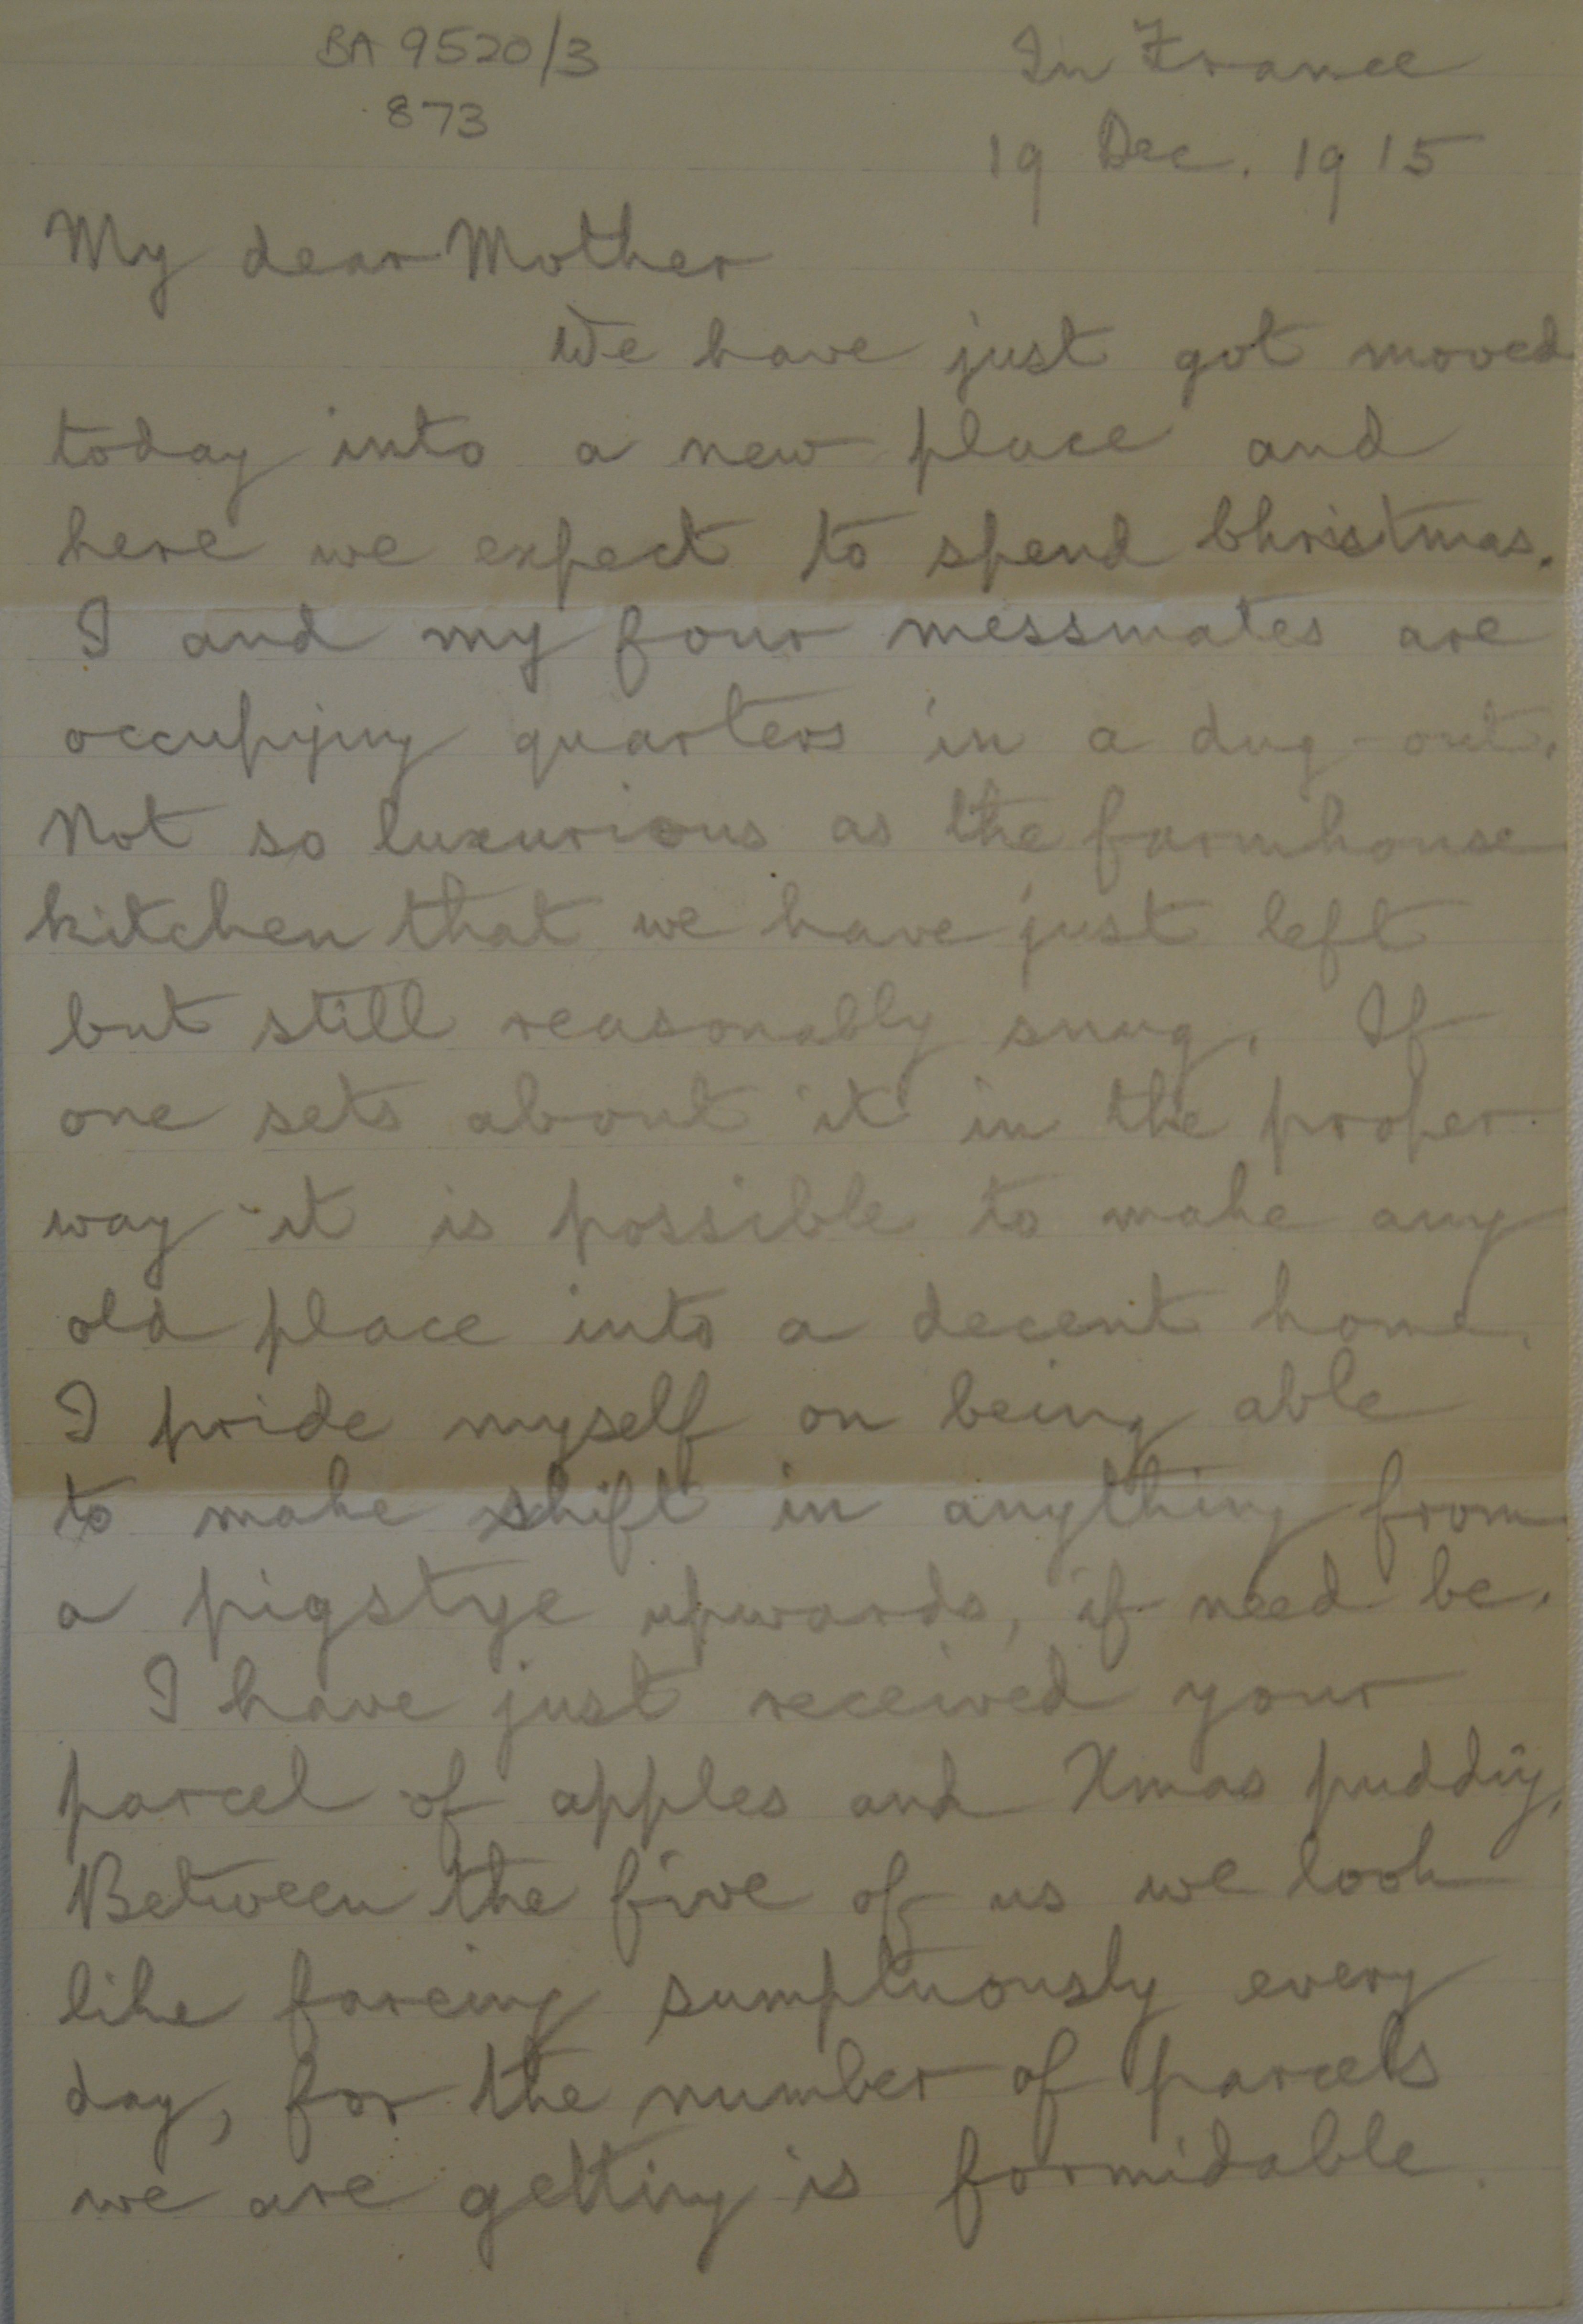 BA 9520/3
873
In France
19 Dec. 1915
My dear Mother
We have just got moved
today into a new place and
here we expect to spend Christmas.
I and my four messmates are
occupying quarters in a dug-out.
Not so luxurious as the farmhouse
kitchen that we have just left
but still reasonably snug. If
one sets about it in the proper
way it is possible to make any
old place into a decent home.
I pride myself on being able
to make shift in anything from
a pigstye upwards, if need be.
I have just received your
parcel of apples and Xmas pudding.
Between the five of us we look
like fareing sumptuously every
day, for the number of parcels
we are getting is formidable.